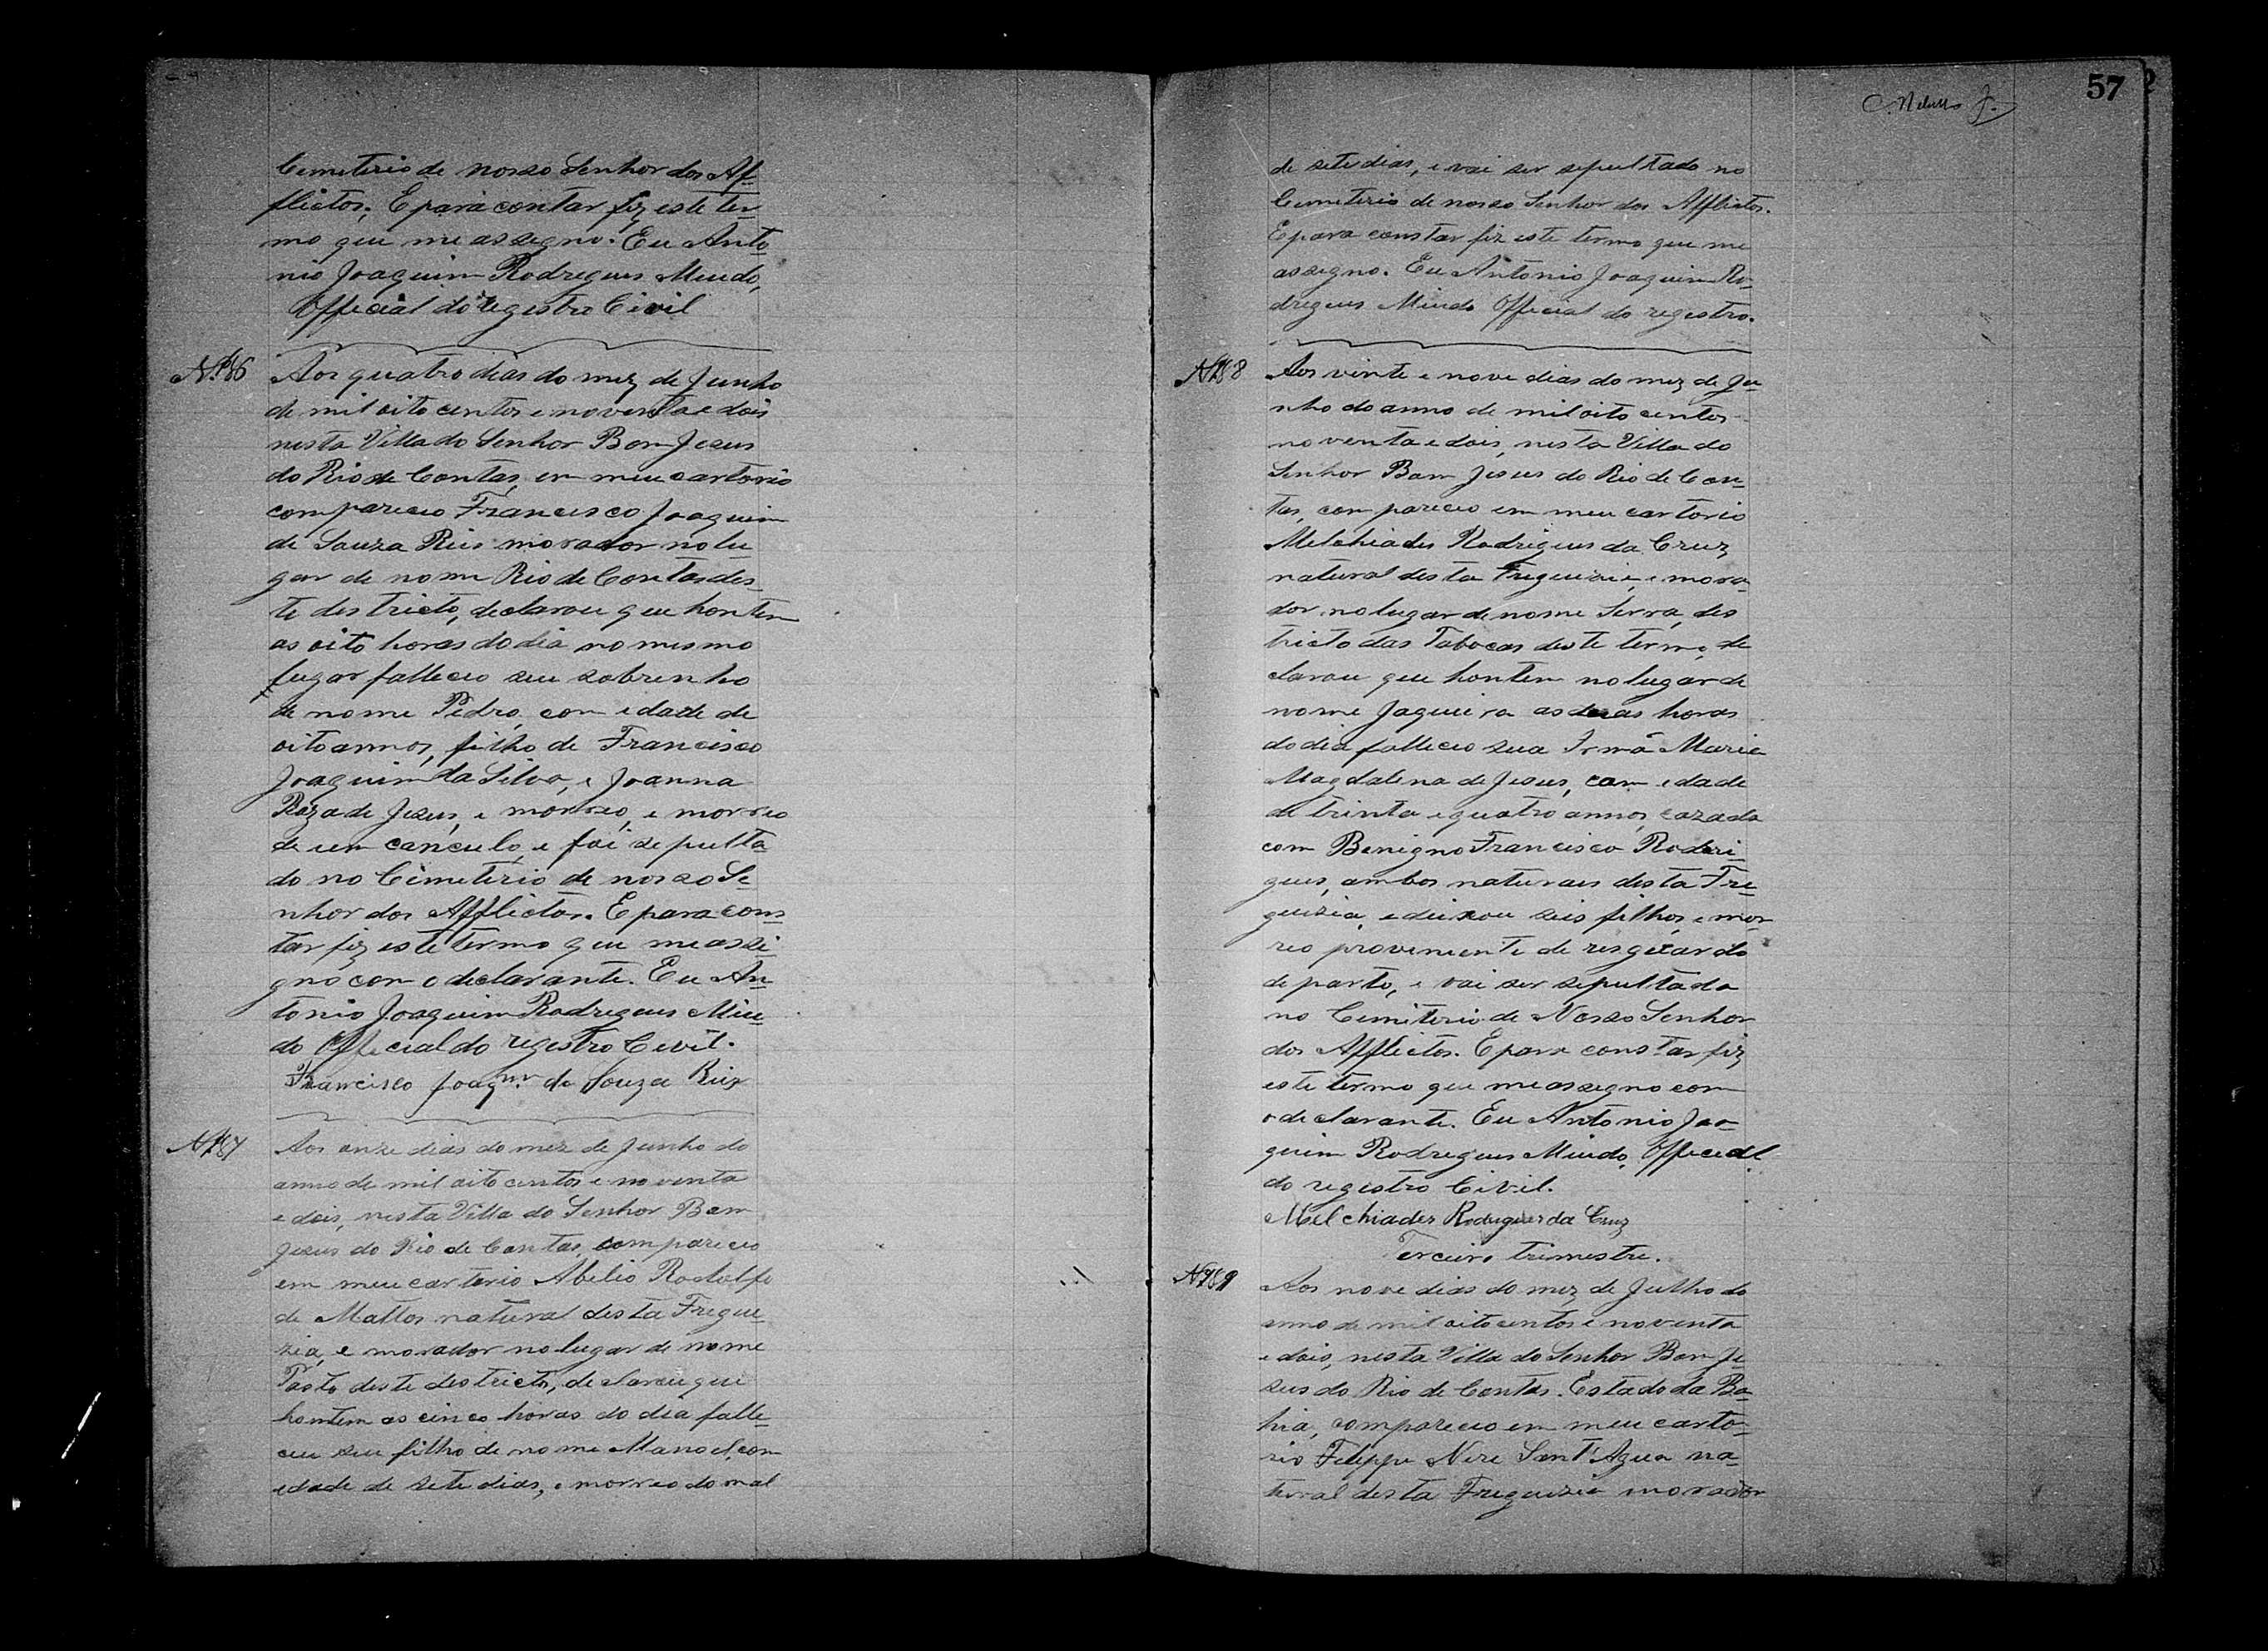 Cemeterio de nosso Senhor dos Af-
flictos; E para contar fiz este ter-
mo que me assegno. Eu Anto
nio Joaquim Rodregues Meudo,
Official do registro Civil
Nº 86
Aos quatro dias do mez de Junho
de mil oito centos e noventa e dois
nesta Villa do Senhor Bom Jesus
do Rio de Contas, em meu cartorio
compareceo Francisco Joaquim
de Souza Reis morador no lu
gar de nome Rio de Contas des
te destricto, declarou que hontem
as oito horas do dia no mesmo
lugar falleceo seu sobrenho
de nome Pedro, com edade de
oito annos, filho de Francisco
Joaquim da Silva, e Joanna
Roza de Jesus, e morreo, e morreo
de um canculo, e foi sepulta
do no Cemeterio de nosso Se
nhor dos Afflictos. E para cons
tar fiz este termo que me assi
gno com o declarante. Eu An
tonio Joaquim Rodregues Miu
do Official do registro Cevil.
Francisco Joaqm. de Souza Reis
Nº 87
Aos onze dias do mez de Junho do
anno de mil oito centos e noventa
e dois, nesta Villa do Senhor Bom
Jesus do Rio de Contas, compareceo
em meu cartorio Abilio Rodolfo
de Mattos natural desta Fregue
zia, e morador no lugar de nome
Pasto deste destricto, declarou que
hontem as cinco horas do dia falle
ceu seu filho de nome Manoel, com
edade de sete dias, e morreo do mal
57
de sete dias, e vai ser sepultado no
Cemeterio de nosso Senhor dos Afflictos.
E para constar fiz este termo que me
assegno. Eu Antonio Joaquim Ro-
dregues Miudo Official do registro.
Nº 88
Aos vinte e nove dias do mez de Ju
nho do anno de mil oito centos
noventa e dois, nesta Villa do
Senhor Bom Jesus do Rio de Con
tas, compareceo em meu cartorio
Melchiades Rodrigues da Cruz,
natural desta Freguezia, e mora
dor no lugar de nome Serra, des
tricto das Tabocas deste termo, de
clarou que hontem no lugar de
nome Jaqueira as horas
do dia falleceo sua Irmã Maria
Magdalena de Jesus, com edade
de trinta e quatro annos, cazada
com Benigno Francisco Rodri
gues, ambos naturaes desta Fre
guezia, e deixou seis filhos, e mor
reo proveniente de resguardo
de parto, e vai ser sepultada
no Cemiterio de Nosso Senhor
dos Afflictos. E para constar fiz
este termo que me assegno com
o declarante. Eu Antonio Joa
quim Rodregues Miudo, Official
do registro Civil.
Melchiades Rodrigues da Cruz
Terceiro trimestre.
Nº 89
Aos nove dias do mez de Julho do
anno de mil oitocentos e noventa
e dois, nesta Villa do Senhor Bom Je
sus do Rio de Contas. Estado da Ba
hia, compareceo em meu carto-
rio Felippe Nere Sant'Agua na
tural desta Freguezia morador